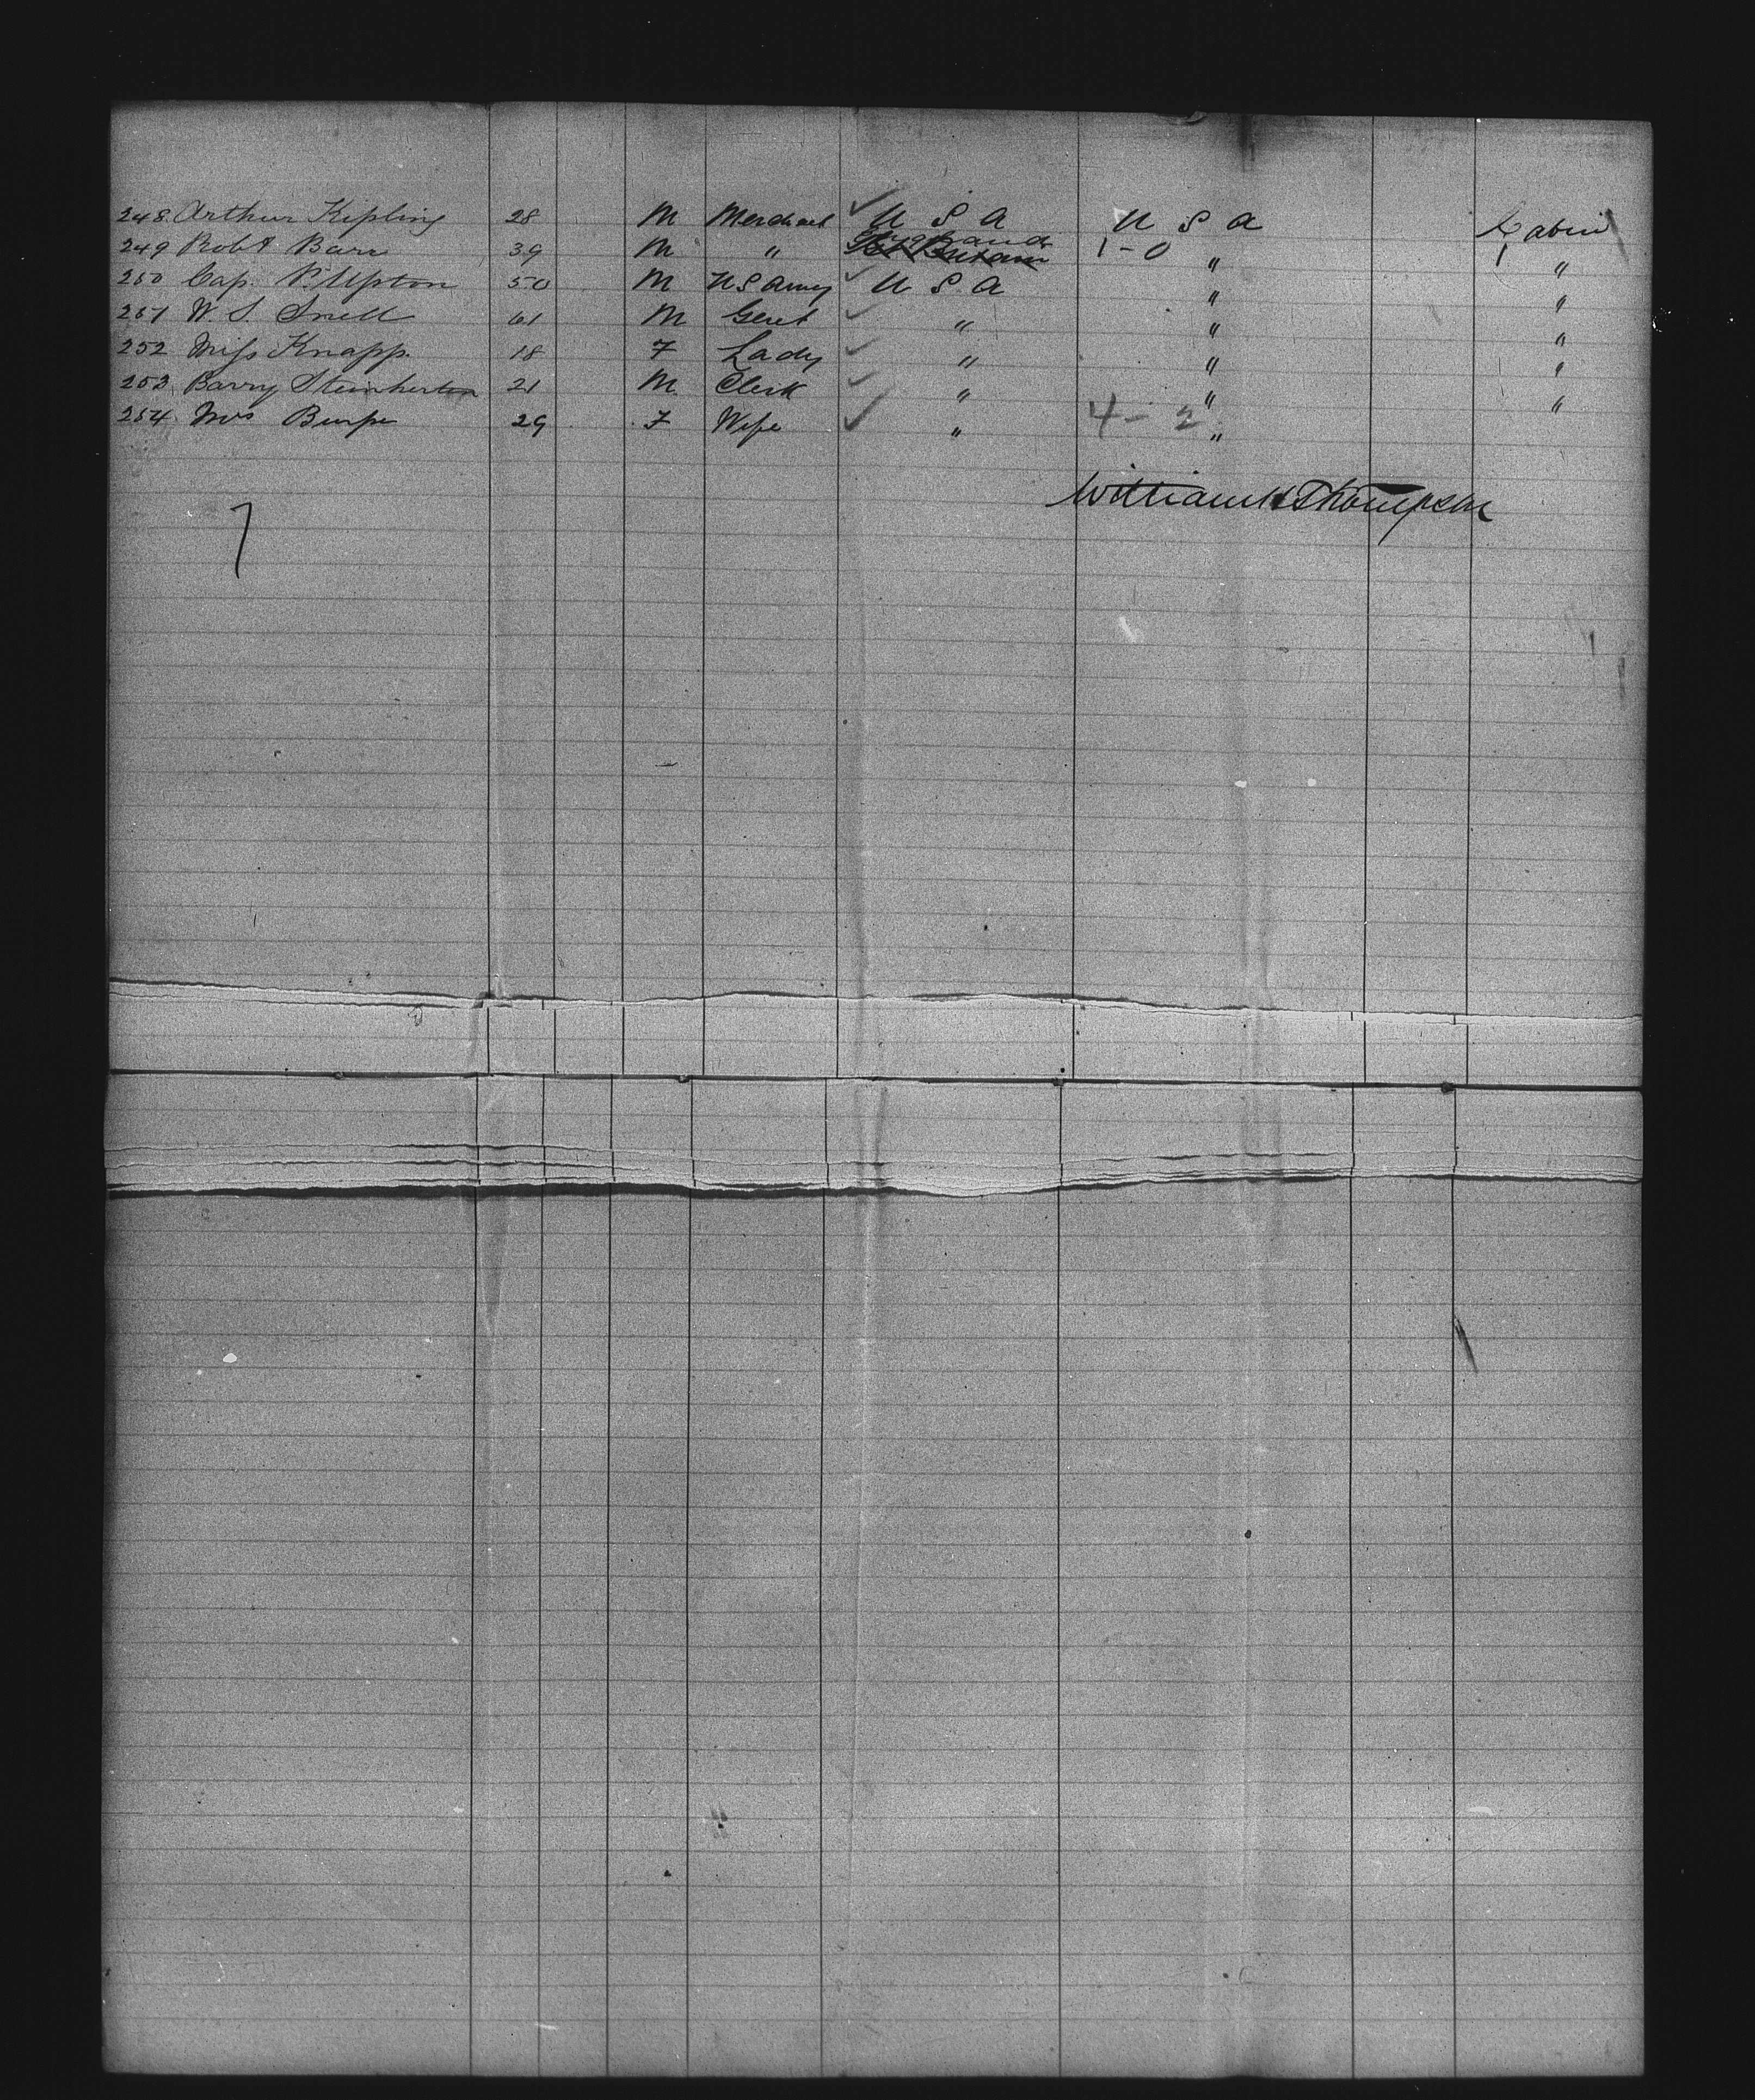 248 Arthur Kipling 28 M Merchant U S A U S A Cabin
249 Robt Barr 39 M " England 1-0 " "
250 Cap. P. Upton 50 M U S Army U S A " "
251 W. S. Snell 61 M Gent " " "
252 Miss Knapp. 18 F Lady " " "
253 Barry 21 M. Clerk " " "
254 Mrs Burpe 29 F Wife " 4-2 "
William H Thompson
7